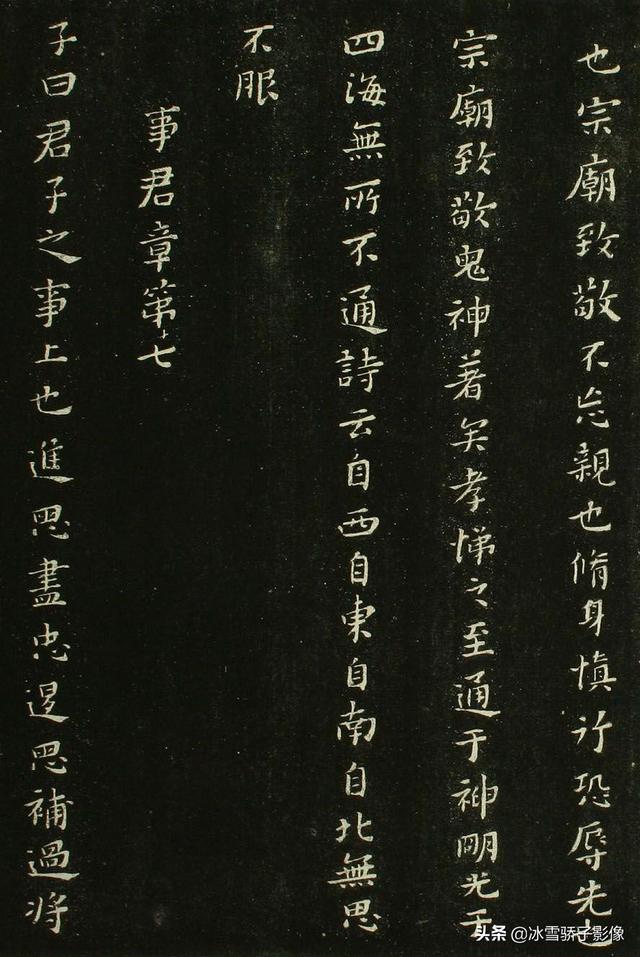 也宗廟致敬不忘親也脩身慎行恐辱先也
宗廟致敬鬼神著矣孝悌之至通于神明光于
四海無所不通詩云自西自東自南自北無思
不服
事君章第十七
子曰君子之事上也進思盡忠退思補過將
头条 @冰雪骄子影像